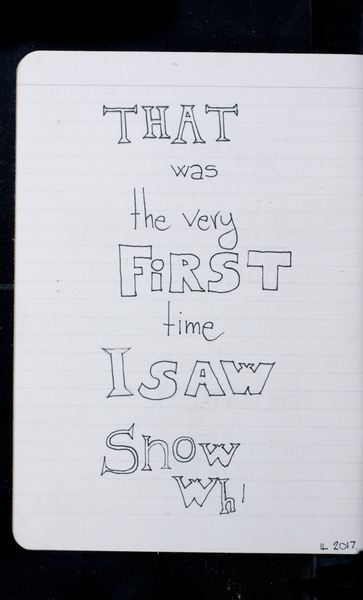 THAT
was
the very
FiRST
time
I SAW
Snow
Wh
LL 2017